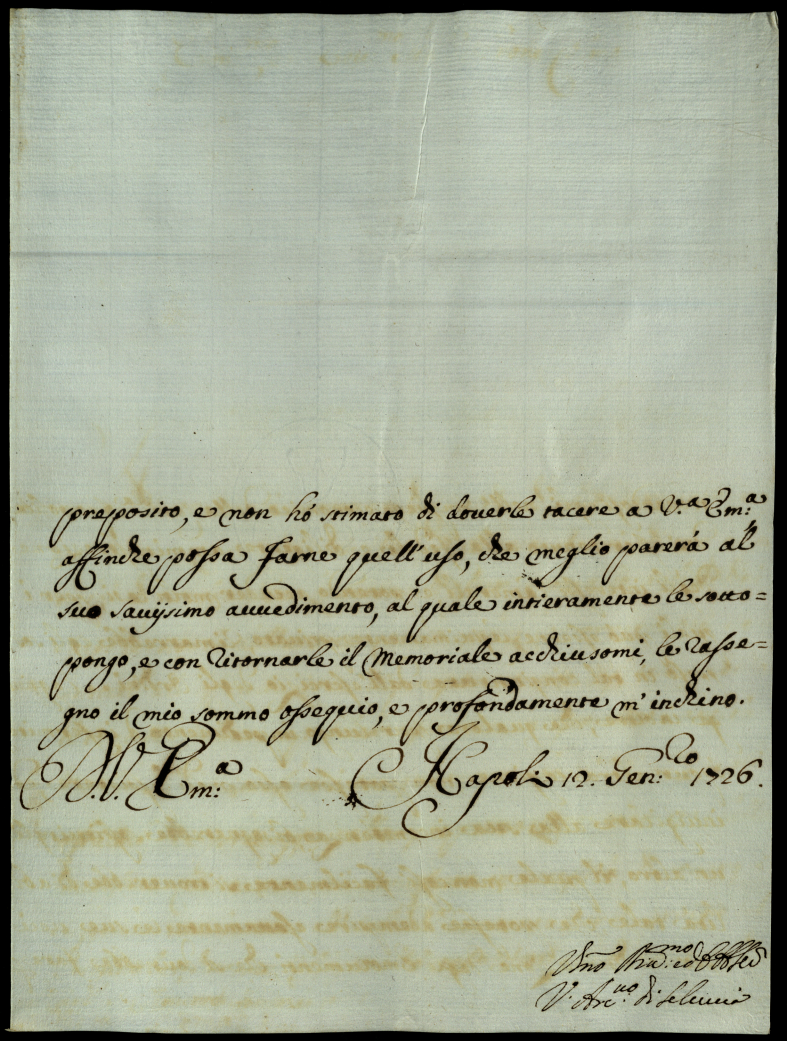 preposito, e non hó stimato di doverle tacere a V.ª Em:ª
affinche possa farne quell'uso, che meglio parerá al
suo saviissimo avvedimento, al quale intieramente le sotto=
pongo, e con ritornarle il Memoriale acchiusomi, le rasse=
gno il mio sommo ossequio, e profondamente m'inchino.
D. V. Em:ª Napoli 12. Gen:ro 1726.
V. Arc.vo di Seleucia